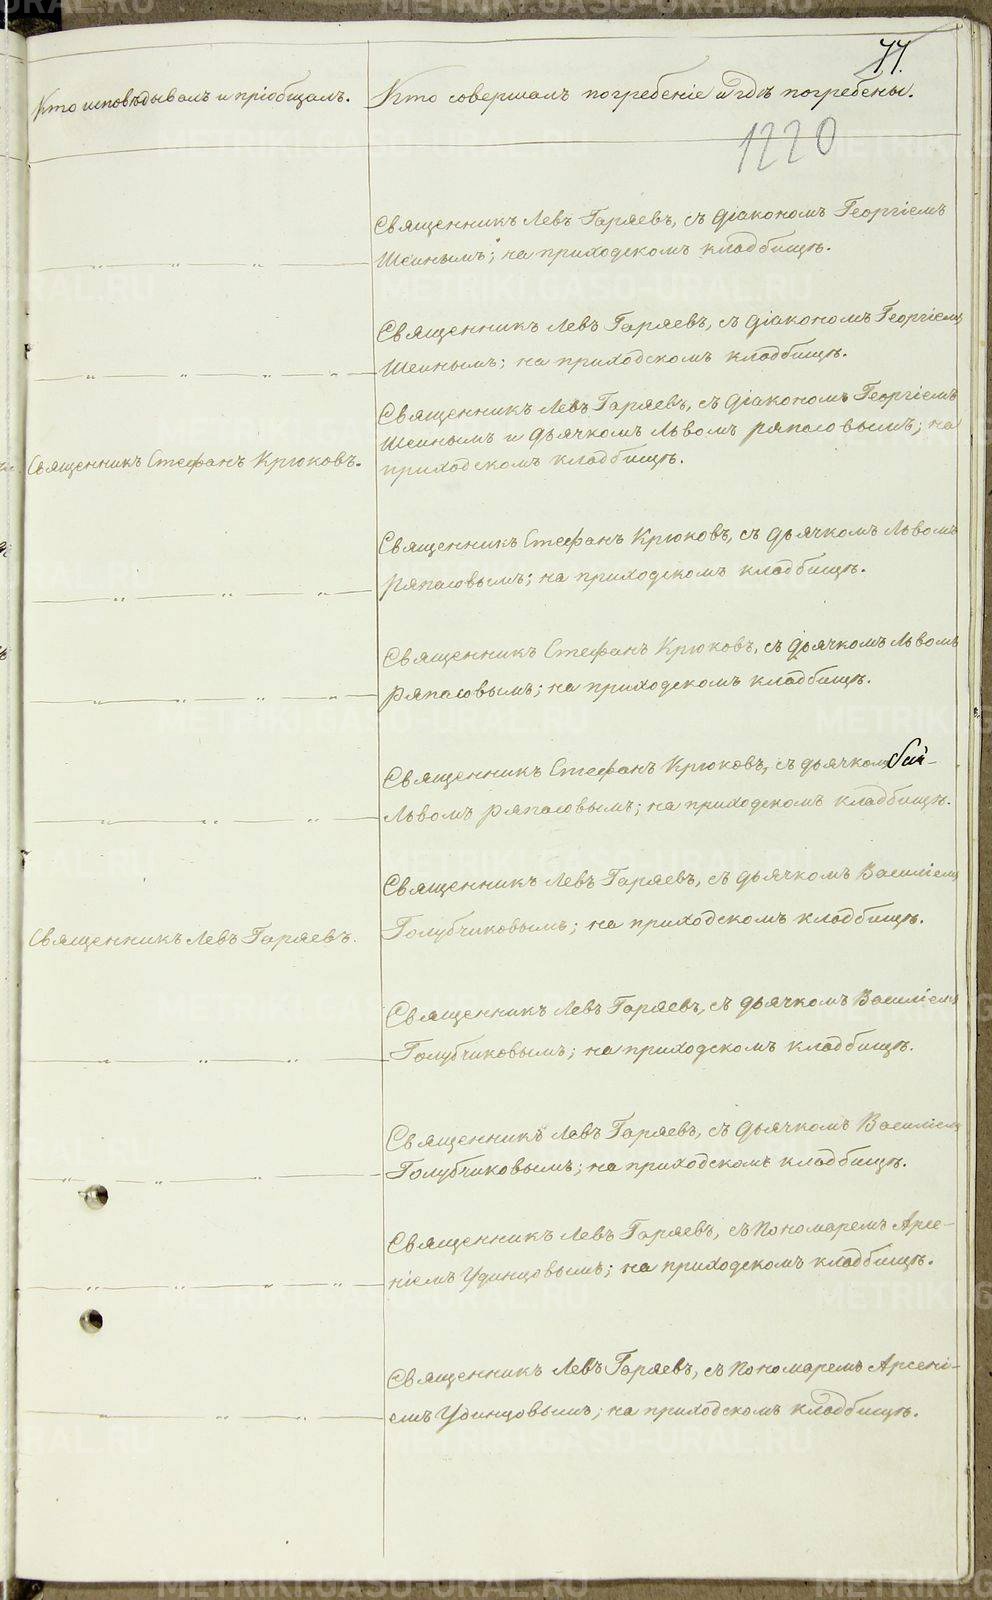 77.
Кто исповѣдывалъ и пріобщалъ.
Кто совершалъ погребеніе и гдѣ погребены.
1220
Священникъ Левъ Гаряевъ, съ діакономъ Георгіемъ
Шеинымъ; на приходскомъ кладбищѣ.
Священникъ Левъ Гаряевъ, съ діакономъ Георгіемъ
Шеинымъ; на приходскомъ кладбищѣ.
Священникъ Стефанъ Крюковъ.
Священникъ Левъ Гаряевъ, съ діакономъ Георгіемъ
Шеинымъ и дьячкомъ Львомъ Ряпасовымъ; на
приходскомъ кладбищѣ.
Священникъ Стефанъ Крюковъ, съ дьячкомъ Львомъ
Ряпасовымъ; на приходскомъ кладбищѣ.
Священникъ Стефанъ Крюковъ, съ дьячкомъ Львомъ
Ряпасовымъ; на приходскомъ кладбищѣ.
Священникъ Стефанъ Крюковъ, съ дьячкомъ
Львомъ Ряпасовымъ; на приходскомъ кладбищѣ.
Священникъ Левъ Гаряевъ.
Священникъ Левъ Гаряевъ, съ дьячкомъ Василіемъ
Голубчиковымъ; на приходскомъ кладбищѣ.
Священникъ Левъ Гаряевъ, съ дьячкомъ Василіемъ
Голубчиковымъ; на приходскомъ кладбищѣ.
Священникъ Левъ Гаряевъ, съ дьячкомъ Василіемъ
Голубчиковымъ; на приходскомъ кладбищѣ.
Священникъ Левъ Гаряевъ, съ пономаремъ Арсе-
ніемъ Удинцовымъ; на приходскомъ кладбищѣ.
Священникъ Левъ Гаряевъ, съ пономаремъ Арсені-
емъ Удинцовымъ; на приходскомъ кладбищѣ.
METRIKI.GASO-URAL.RU